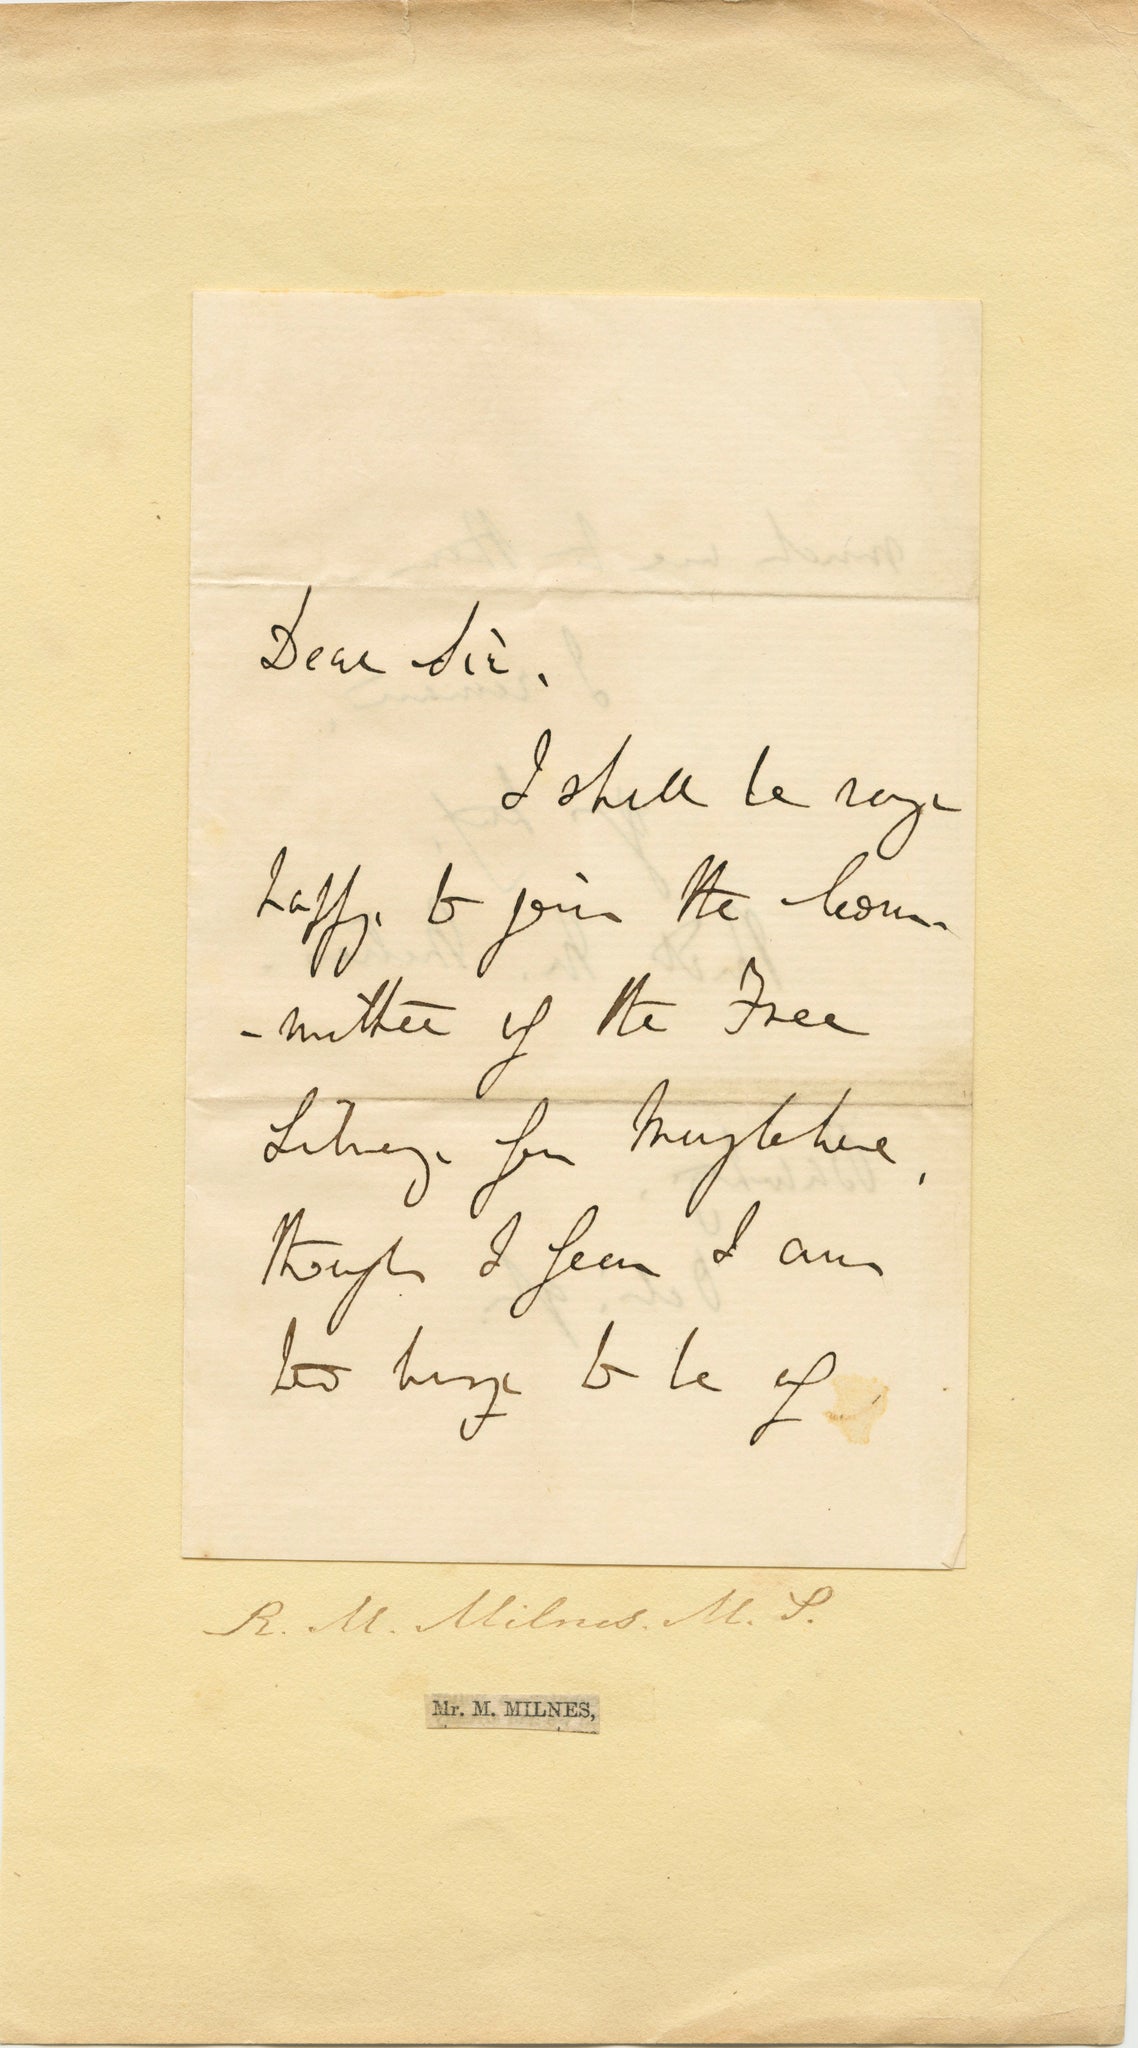 Dear Sir,
I shall be very
happy to join the Com-
-mittee of the Free
Library for Marylebone,
though I fear I am
too busy to be of
R. M. Milnes. M. P.
Mr. M. MILNES,